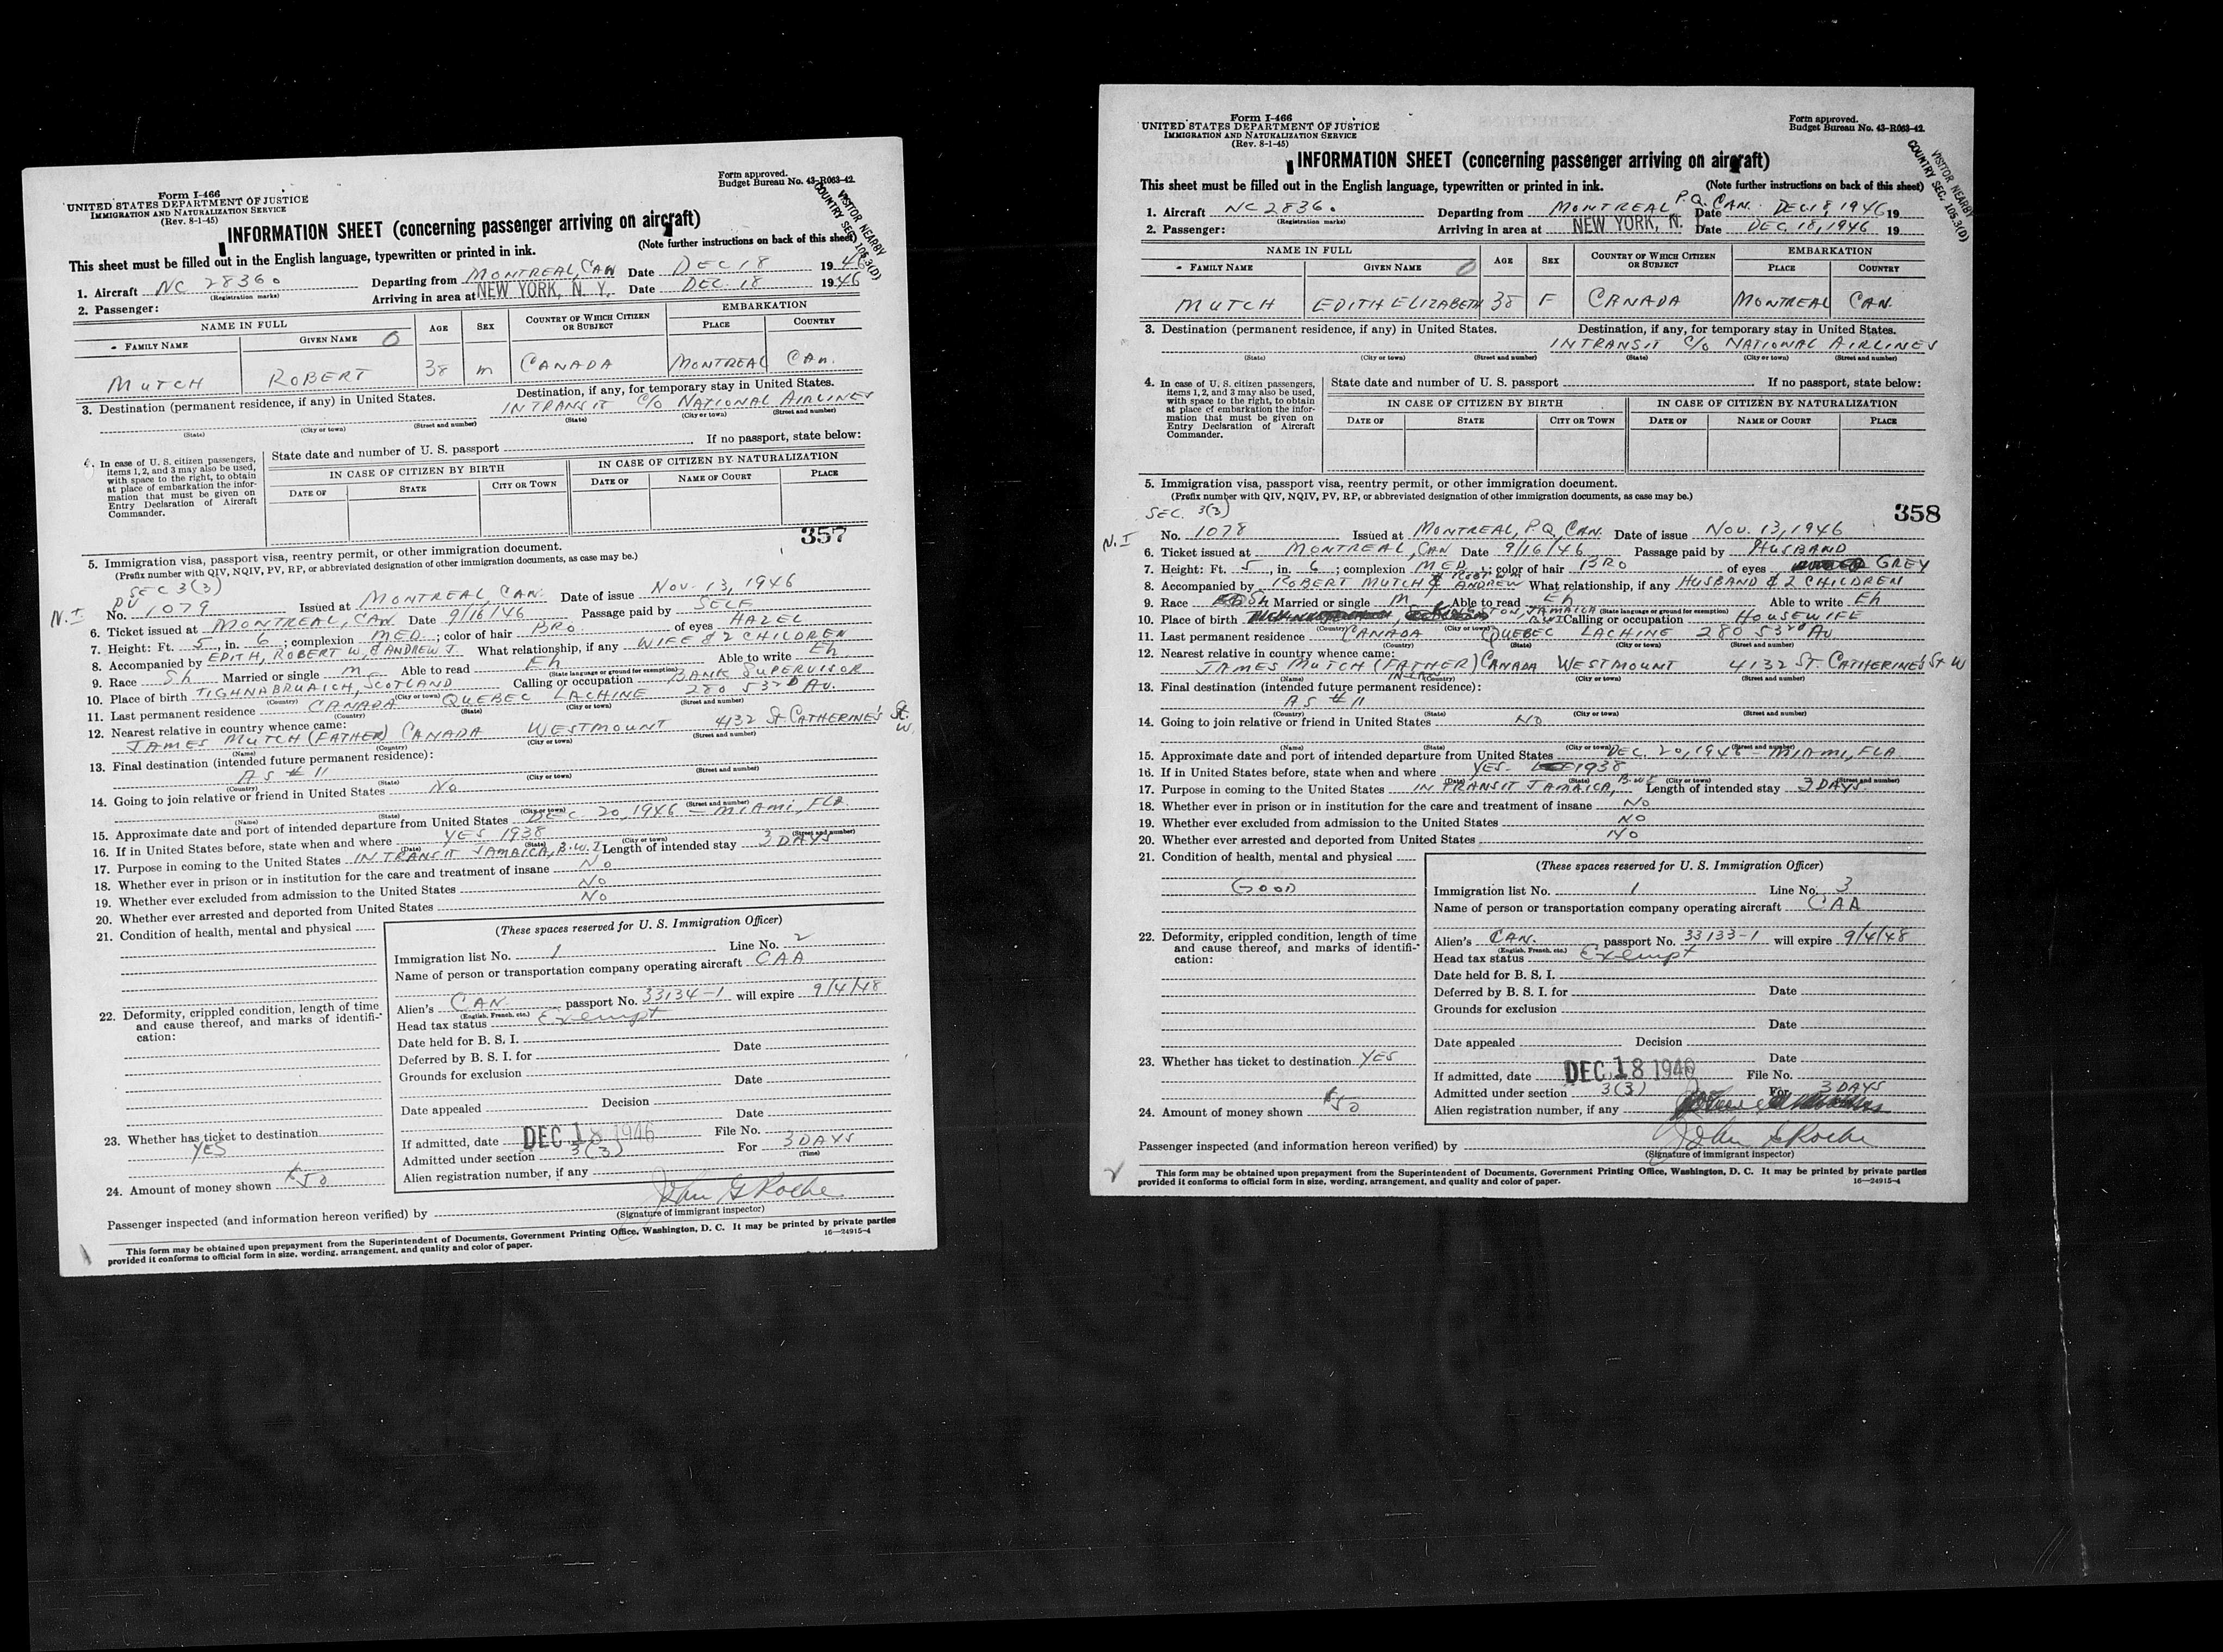 Form I-466
UNITED STATES DEPARTMENT OF JUSTICE
IMMIGRATION AND NATURALIZATION SERVICE
(Rev. 8-1-45)
Form approved.
Budget Bureau No. 43-R063-42.
VISITOR NEARBY
COUNTRY SEC. 105.3(D)
INFORMATION SHEET (concerning passenger arriving on aircraft)
This sheet must be filled out in the English language, typewritten or printed in ink.
(Note further instructions on back of this sheet)
1. Aircraft NC 28360 Departing from MONTREAL, CAN Date DEC 18 1946
(Registration marks)
2. Passenger: Arriving in area at NEW YORK, N. Y. Date DEC. 18 1946
NAME IN FULL AGE SEX COUNTRY OF WHICH CITIZEN OR SUBJECT EMBARKATION
FAMILY NAME GIVEN NAME PLACE COUNTRY
MUTCH ROBERT 38 M CANADA MONTREAL CAN.
3. Destination (permanent residence, if any) in United States. Destination, if any, for temporary stay in United States.
IN TRANSIT C/O NATIONAL AIRLINES
(State) (City or town) (Street and number) (State) (City or town) (Street and number)
4. In case of U. S. citizen passengers, items 1, 2, and 3 may also be used, with space to the right, to obtain at place of embarkation the information that must be given on Entry Declaration of Aircraft Commander.
State date and number of U. S. passport If no passport, state below:
IN CASE OF CITIZEN BY BIRTH IN CASE OF CITIZEN BY NATURALIZATION
DATE OF STATE CITY OR TOWN DATE OF NAME OF COURT PLACE
357
5. Immigration visa, passport visa, reentry permit, or other immigration document.
(Prefix number with QIV, NQIV, PV, RP, or abbreviated designation of other immigration documents, as case may be.)
SEC 3(3)
N.I PV
No. 1079 Issued at MONTREAL, CAN. Date of issue NOV. 13, 1946
6. Ticket issued at MONTREAL, CAN. Date 9/16/46 Passage paid by SELF
7. Height: Ft. 5, in. 6; complexion MED.; color of hair BRO of eyes HAZEL
8. Accompanied by EDITH, ROBERT W, & ANDREW J. What relationship, if any WIFE & 2 CHILDREN
9. Race Sh Married or single M Able to read Eh Able to write Eh
(State language or ground for exemption)
10. Place of birth TIGHNABRUAICH, SCOTLAND Calling or occupation BANK SUPERVISOR
(Country) (City or town)
11. Last permanent residence CANADA QUEBEC LACHINE 280 53RD AV.
(Country) (State) (City or town) (Street and number)
12. Nearest relative in country whence came:
JAMES MUTCH (FATHER) CANADA WESTMOUNT 4132 ST. CATHERINE'S St. W.
(Name) (Country) (City or town) (Street and number)
13. Final destination (intended future permanent residence):
AS # 11
(Country) (State) (City or town) (Street and number)
14. Going to join relative or friend in United States NO
(Name) (State) (City or town) (Street and number)
15. Approximate date and port of intended departure from United States DEC. 20, 1946 - MIAMI, FLA
16. If in United States before, state when and where YES 1938
(Date) (State) (City or town) (Street and number)
17. Purpose in coming to the United States IN TRANSIT JAMAICA, B.W.I Length of intended stay 3 DAYS
18. Whether ever in prison or in institution for the care and treatment of insane NO
19. Whether ever excluded from admission to the United States NO
20. Whether ever arrested and deported from United States NO
21. Condition of health, mental and physical
22. Deformity, crippled condition, length of time and cause thereof, and marks of identification:
23. Whether has ticket to destination
YES
24. Amount of money shown $50
(These spaces reserved for U. S. Immigration Officer)
Immigration list No. 1 Line No. 2
Name of person or transportation company operating aircraft CAA
Alien's CAN. passport No. 33134-1 will expire 9/4/48
(English, French, etc.)
Head tax status Exempt
Date held for B. S. I.
Deferred by B. S. I. for Date
Grounds for exclusion
Date
Date appealed Decision
Date
If admitted, date DEC 18 1946 File No.
Admitted under section 3(3) For 3 DAYS
(Time)
Alien registration number, if any
Passenger inspected (and information hereon verified) by John G Roche
(Signature of immigrant inspector)
This form may be obtained upon prepayment from the Superintendent of Documents, Government Printing Office, Washington, D. C. It may be printed by private parties
provided it conforms to official form in size, wording, arrangement, and quality and color of paper. 16—24915-4
Form I-466
UNITED STATES DEPARTMENT OF JUSTICE
IMMIGRATION AND NATURALIZATION SERVICE
(Rev. 8-1-45)
Form approved.
Budget Bureau No. 43-R063-42.
VISITOR NEARBY
COUNTRY SEC. 105.3(D)
INFORMATION SHEET (concerning passenger arriving on aircraft)
This sheet must be filled out in the English language, typewritten or printed in ink.
(Note further instructions on back of this sheet)
1. Aircraft NC 28360 Departing from MONTREAL P.Q. CAN. Date DEC 18, 1946 19
(Registration marks)
2. Passenger: Arriving in area at NEW YORK, N. Date DEC, 18, 1946 19
NAME IN FULL AGE SEX COUNTRY OF WHICH CITIZEN OR SUBJECT EMBARKATION
FAMILY NAME GIVEN NAME PLACE COUNTRY
MUTCH EDITH ELIZABETH 38 F CANADA MONTREAL CAN.
3. Destination (permanent residence, if any) in United States. Destination, if any, for temporary stay in United States.
IN TRANSIT C/O NATIONAL AIRLINES
(State) (City or town) (Street and number) (State) (City or town) (Street and number)
4. In case of U. S. citizen passengers, items 1, 2, and 3 may also be used, with space to the right, to obtain at place of embarkation the information that must be given on Entry Declaration of Aircraft Commander.
State date and number of U. S. passport If no passport, state below:
IN CASE OF CITIZEN BY BIRTH IN CASE OF CITIZEN BY NATURALIZATION
DATE OF STATE CITY OR TOWN DATE OF NAME OF COURT PLACE
5. Immigration visa, passport visa, reentry permit, or other immigration document.
(Prefix number with QIV, NQIV, PV, RP, or abbreviated designation of other immigration documents, as case may be.)
SEC. 3(3) 358
N.I
No. 1078 Issued at MONTREAL, P.Q, CAN. Date of issue NOV. 13, 1946
6. Ticket issued at MONTREAL, CAN Date 9/16/46 Passage paid by HUSBAND
7. Height: Ft. 5, in. 6; complexion MED.; color of hair BRO of eyes GREY
8. Accompanied by ROBERT MUTCH & ROBT WM ANDREW What relationship, if any HUSBAND & 2 CHILDREN
9. Race Sh Married or single M Able to read Eh Able to write Eh
(State language or ground for exemption)
10. Place of birth KINGSTON, JAMAICA BWI Calling or occupation HOUSEWIFE
(Country) (City or town)
11. Last permanent residence CANADA QUEBEC LACHINE 280 53RD AV.
(Country) (State) (City or town) (Street and number)
12. Nearest relative in country whence came:
JAMES MUTCH (FATHER IN LAW) CANADA WESTMOUNT 4132 ST. CATHERINE'S St W
(Name) (Country) (City or town) (Street and number)
13. Final destination (intended future permanent residence):
AS # 11
(Country) (State) (City or town) (Street and number)
14. Going to join relative or friend in United States NO
(Name) (State) (City or town) (Street and number)
15. Approximate date and port of intended departure from United States DEC. 20, 1946 - MIAMI, FLA.
16. If in United States before, state when and where YES - 1938
(Date) (State) (City or town) (Street and number)
17. Purpose in coming to the United States IN TRANSIT JAMAICA, B.W.I Length of intended stay 3 DAYS.
18. Whether ever in prison or in institution for the care and treatment of insane NO
19. Whether ever excluded from admission to the United States NO
20. Whether ever arrested and deported from United States NO
21. Condition of health, mental and physical
GOOD
22. Deformity, crippled condition, length of time and cause thereof, and marks of identification:
23. Whether has ticket to destination YES
24. Amount of money shown $50
(These spaces reserved for U. S. Immigration Officer)
Immigration list No. 1 Line No. 3
Name of person or transportation company operating aircraft CAA
Alien's CAN. passport No. 33133-1 will expire 9/4/48
(English, French, etc.)
Head tax status Exempt
Date held for B. S. I.
Deferred by B. S. I. for Date
Grounds for exclusion
Date
Date appealed Decision
Date
If admitted, date DEC 18 1946 File No.
Admitted under section 3(3) For 3 DAYS
Alien registration number, if any
Passenger inspected (and information hereon verified) by John G Roche
(Signature of immigrant inspector)
This form may be obtained upon prepayment from the Superintendent of Documents, Government Printing Office, Washington, D. C. It may be printed by private parties
provided it conforms to official form in size, wording, arrangement, and quality and color of paper. 16—24915-4